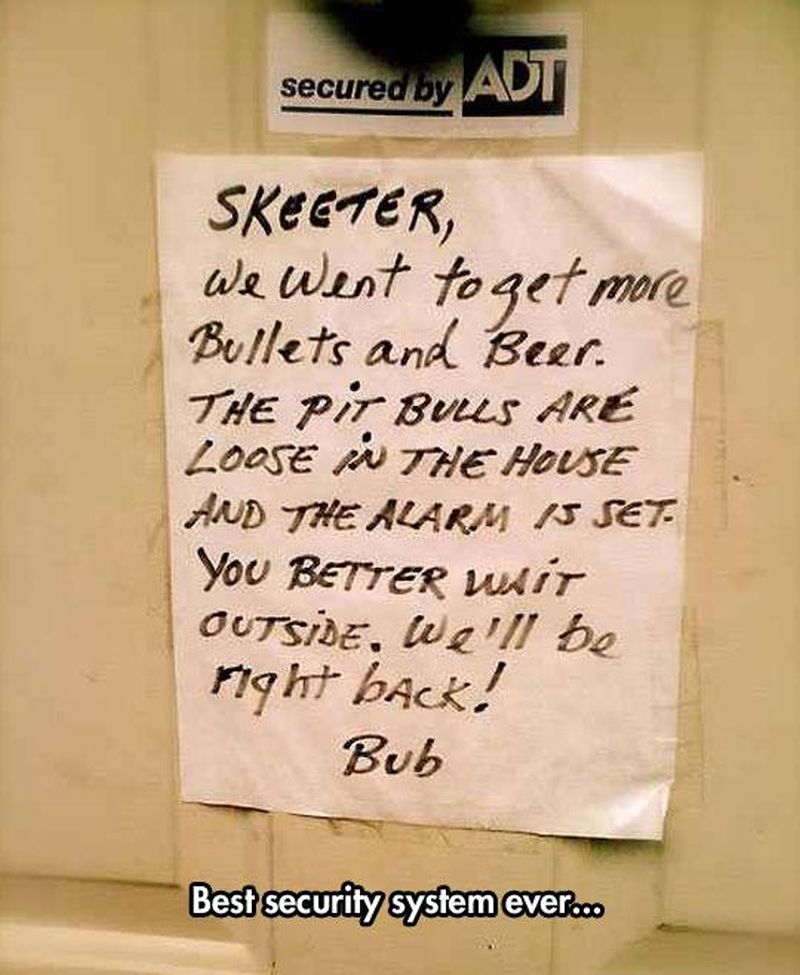 secured by ADT
SKEETER,
We Went to get more
Bullets and Beer.
THE PiT BULLS ARE
LOOSE iN THE HOUSE
AND THE ALARM IS SET.
YOU BETTER WAIT
OUTSiDE. We'll be
right bACK!
Bub
Best security system ever...